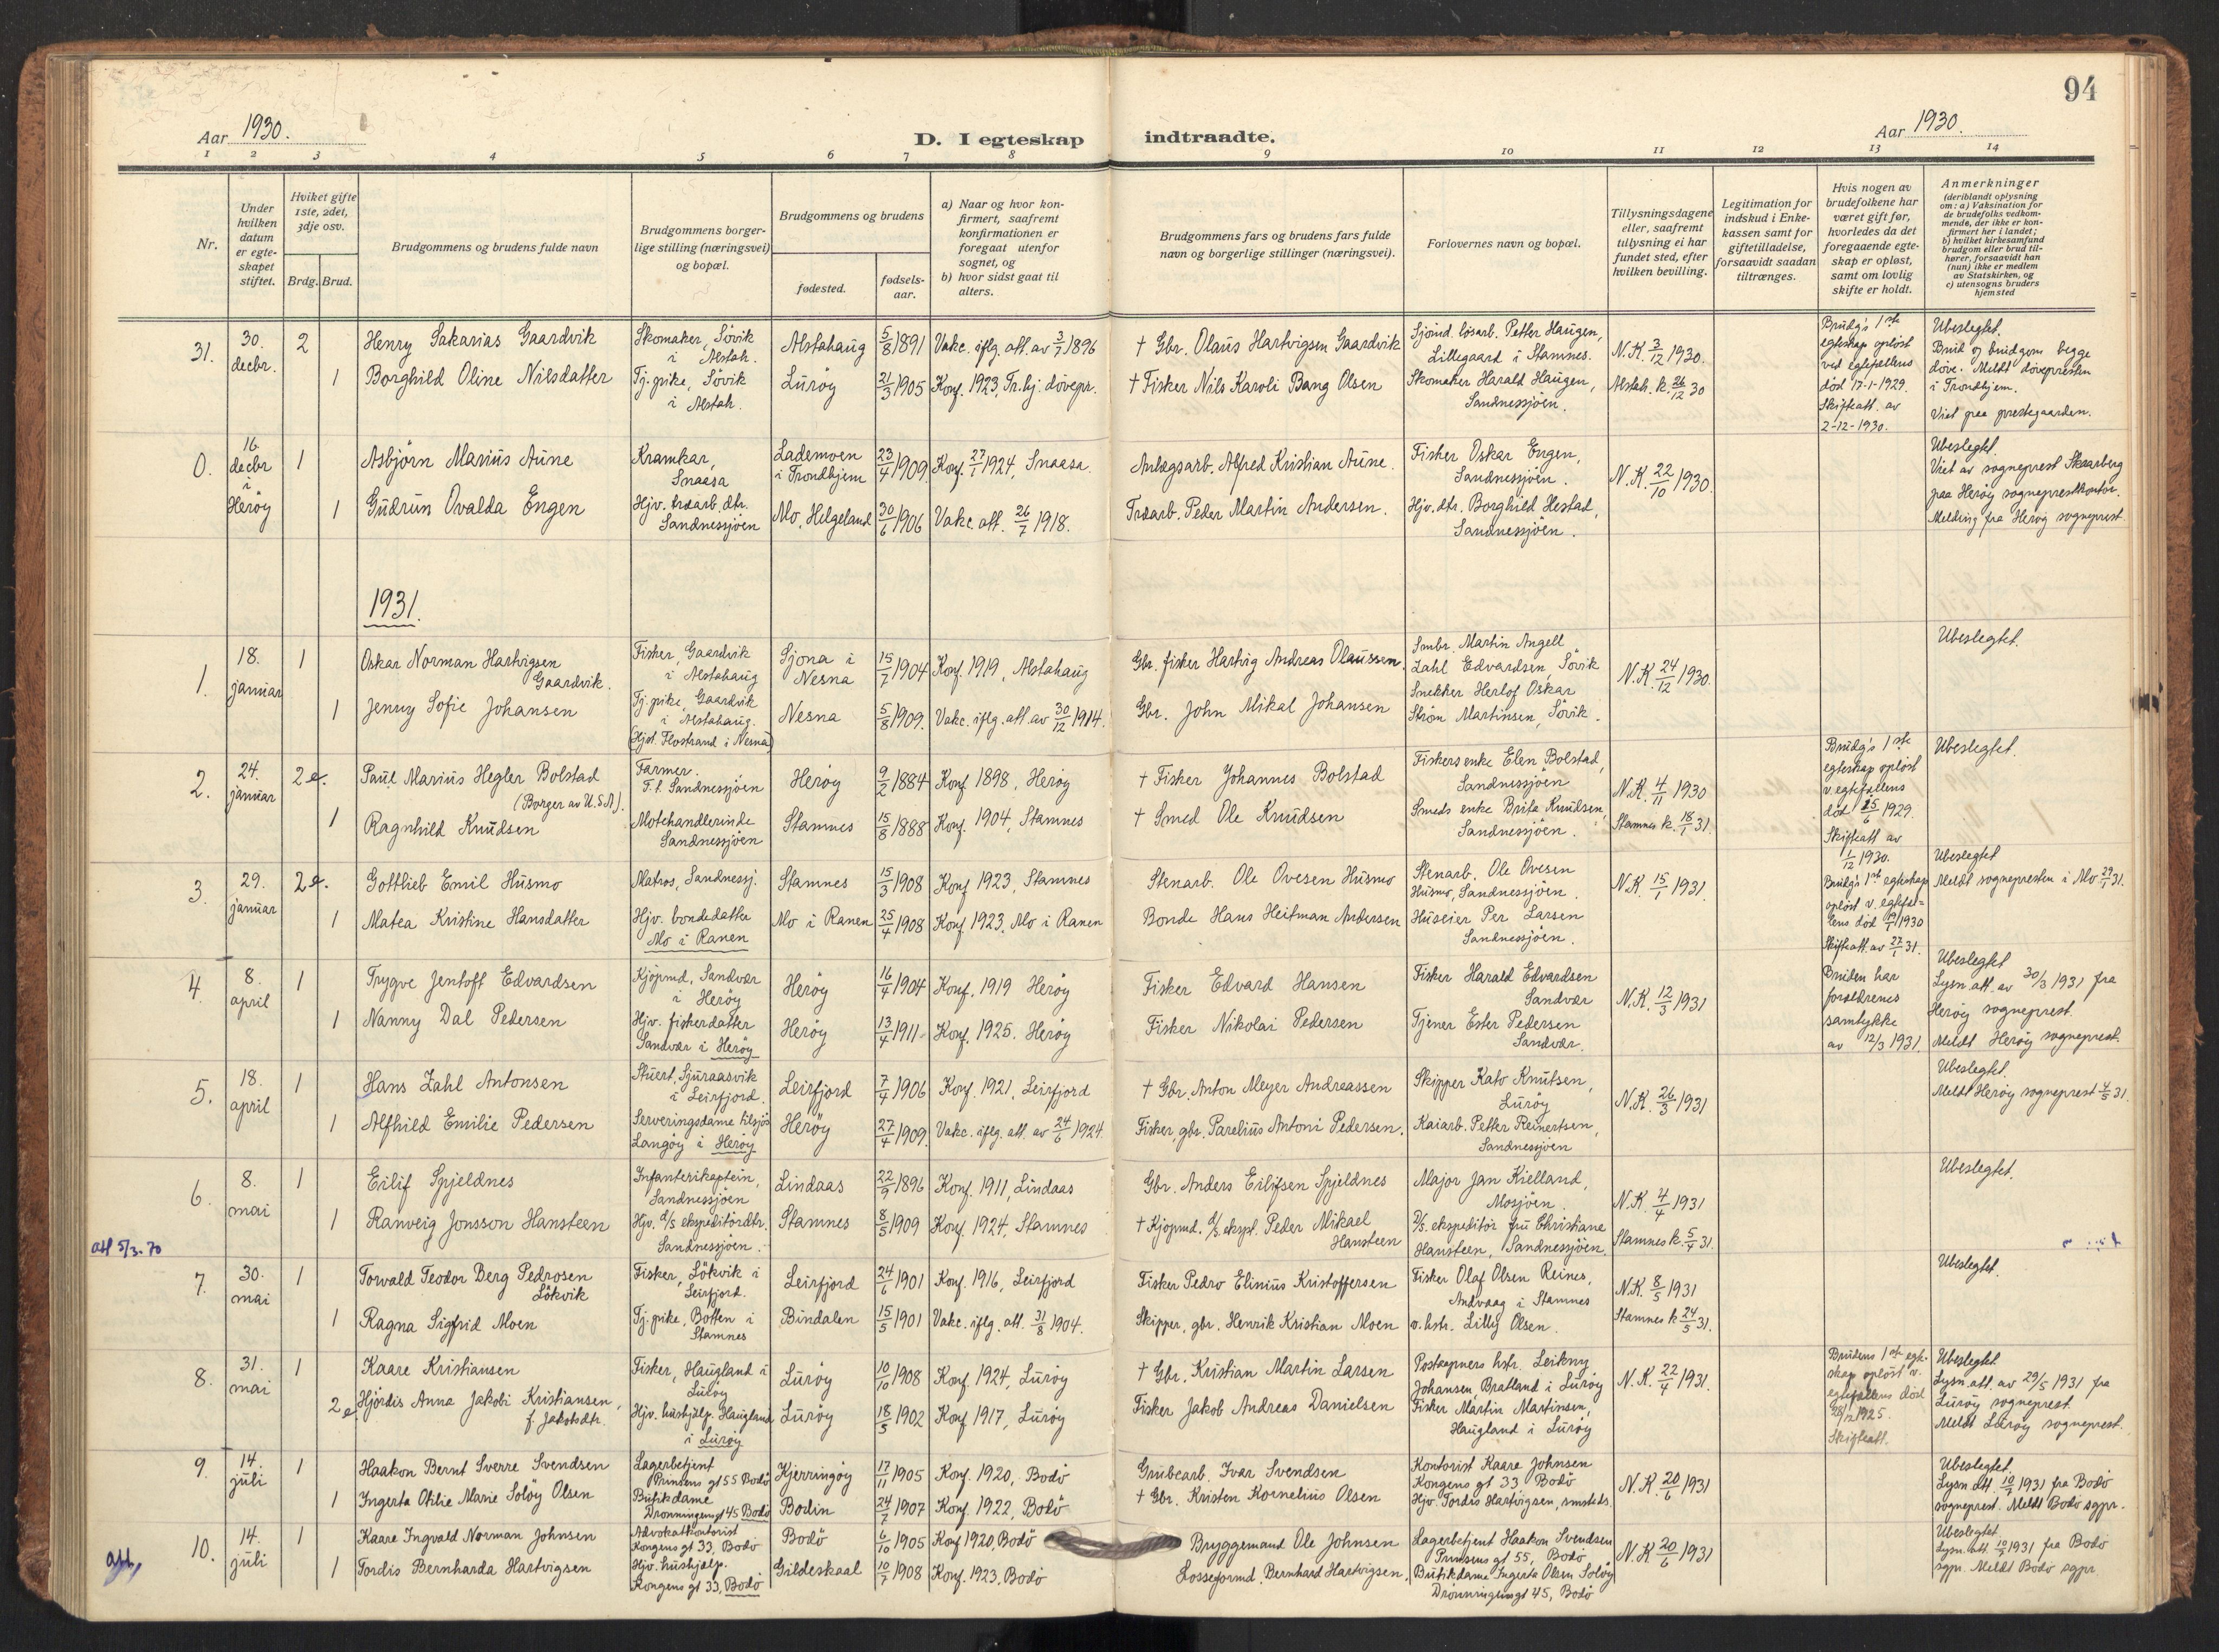 94
Aar 1930.
D. I egteskap indtraadte.
Aar 1930.
1 2 3 4 5 6 7 8 9 10 11 12 13 14
Nr.
Under hvilken datum er egteskapet stiftet.
Hvilket gifte 1ste, 2det, 3dje osv.
Brdg. Brud.
Brudgommens og brudens fulde navn
Brudgommens borgerlige stilling (næringsvei) og bopæl.
Brudgommens og brudens
fødested.
fødselsaar.
a) Naar og hvor konfirmert, saafremt konfirmationen er foregaat utenfor sognet, og
b) hvor sidst gaat til alters.
Brudgommens fars og brudens fars fulde navn og borgerlige stillinger (næringsvei).
Forlovernes navn og bopæl.
Tillysningsdagene eller, saafremt tillysning ei har fundet sted, efter hvilken bevilling.
Legitimation for indskud i Enkekassen samt for giftetilladelse, forsaavidt saadan tiltrænges.
Hvis nogen av brudefolkene har været gift før, hvorledes da det foregaaende egteskap er opløst, samt om lovlig skifte er holdt.
Anmerkninger (deriblandt oplysning om: a) Vaksination for de brudefolks vedkommende, der ikke er konfirmert her i landet; b) hvilket kirkesamfund brudgom eller brud tilhører, forsaavidt han (hun) ikke er medlem av Statskirken, og c) utensogns bruders hjemsted
31. 30. decbr. 2 Henry Sakarias Gaardvik
Skomaker, Søvik i Alstah.
Alstahaug 5/8 1891 Vakc. iflg. att. av 3/7 1896
† Gbr. Olaus Hartvigsen Gaardvik
Sjömd. løsarb. Petter Haugen, Lillegaard i Stamnes.
N.K. 3/12 1930.
Brudg's 1ste egteskap opløst ved egtefellens död 17-1-1929. Skifteatt. av 2-12-1930.
Ubeslegtet. Brud og brudgom begge døve. Meldt døvepresten i Trondhjem. Viet paa prestegaarden.
1 Borghild Oline Nilsdatter
Tj. pike, Søvik i Alstah.
Lurøy 21/3 1905 Konf. 1923, Tr.hj. døvepr.
† Fisker Nils Karoli Bang Olsen
Skomaker Harald Haugen, Sandnessjöen.
Alstah. k. 26/12 30
0. 16. decbr i Herøy 1 Asbjørn Marius Aune
Kramkar, Snaasa
Lademoen i Trondhjem 23/4 1909. Konf. 27/7 1924, Snaasa.
Anlægsarb. Alfred Kristian Aune.
Fisker Oskar Engen, Sandnessjöen.
N.K. 22/10 1930.
Ubeslegtet. Viet av sogneprest Skaarberg paa Herøy sogneprestkontor. Melding fra Herøy sogneprest.
1 Gudrun Ovalda Engen
Hjv. træarb. dtr. Sandnessjöen
Mo, Helgeland 30/6 1906 Vakc. att. 26/7 1918.
Træarb. Peder Martin Andersen.
Hjv. dtr. Borghild Hestad, Sandnessjöen.
1931.
1. 18. januar 1 Oskar Norman Hartvigsen Gaardvik.
Fisker, Gaardvik i Alstahaug
Sjona i Nesna 15/7 1904 Konf. 1919, Alstahaug
Gbr. fisker Hartvig Andreas Olaussen.
Smbr. Martin Angell Zahl Edvardsen, Søvik
N.K. 24/12 1930.
Ubeslegtet.
1 Jenny Sofie Johansen
Tj. pike, Gaardvik i Alstahaug. (Hjst. Flostrand i Nesna)
Nesna 5/8 1909. Vakc. iflg. att. av 30/12 1914.
Gbr. John Mikal Johansen
Snekker Herlof Oskar Strøm Martinsen, Søvik.
2. 24. januar 2e. Paul Marius Hegler Bolstad (Borger av U.S.A).
Farmer. F.t. Sandnessjöen
Herøy 9/2 1884 Konf 1898, Herøy
† Fisker Johannes Bolstad
Fiskers enke Elen Bolstad, Sandnessjöen
N.K. 4/11 1930
Brudg's 1ste egteskap opløst v. egtefellens död 25/6 1929. Skifteatt av 1/12 1930.
Ubeslegtet.
1 Ragnhild Knudsen
Motehandlerinde Sandnessjöen
Stamnes 15/8 1888 Konf. 1904, Stamnes
† Smed Ole Knudsen
Smeds enke Brita Knudsen, Sandnessjöen.
Stamnes k. 18/1 31.
3. 29. januar 2e. Gottlieb Emil Husmo
Matros, Sandnessj.
Stamnes 15/3 1908 Konf 1923, Stamnes
Stenarb. Ole Ovesen Husmo
Stenarb. Ole Ovesen Husmo, Sandnessjöen.
N.K. 15/1 1931.
Brudg's 1ste egteskap opløst v. egtefellens död 1930 Skifteatt. av 27/1 31.
Ubeslegtet Meldt sognepresten i Mo 29/1 31.
1 Matea Kristine Hansdatter
Hjv. bondedatter Mo i Ranen
Mo i Ranen 25/4 1908 Konf. 1923, Mo i Ranen
Bonde Hans Heitman Andersen
Huseier Per Larsen Sandnessjöen.
4. 8. april 1 Trygve Jentoft Edvardsen
Kjöpmd, Sandvær i Herøy
Herøy 16/4 1904 Konf. 1919 Herøy
Fisker Edvard Hansen
Fisker Harald Edvardsen Sandvær
N.K. 12/3 1931
Bruden har foreldrenes samtykke av 12/3 1931.
Ubeslegtet Lysn. att. av 30/3 1931 fra Herøy sogneprest. Meldt Herøy sogneprest.
1 Nanny Dal Pedersen
Hjv. fiskerdatter Sandvær i Herøy
Herøy 13/4 1911 Konf. 1925. Herøy
Fisker Nikolai Pedersen
Tjener Ester Pedersen Sandvær.
5. 18. april 1 Hans Zahl Antonsen
Stuert, Sjuraasvik i Leirfjord.
Leirfjord 7/4 1906 Konf. 1921, Leirfjord
† Gbr. Anton Meyer Andreassen
Skipper Kato Knutsen, Lurøy
N.K. 26/3 1931
Ubeslegtet. Meldt Herøy sogneprest 4/5 31.
1 Alfhild Emilie Pedersen
Serveringsdame tilsjøs Langøy i Herøy
Herøy 27/4 1909. Vakc. iflg. att. av 24/6 1924.
Fisker, gbr. Parelius Antoni Pedersen.
Kaiarb. Petter Reinertsen, Sandnessjöen
6. 8. mai 1 Eilif Spjeldnes
Infanterikaptein, Sandnessjöen
Lindaas 22/9 1896 Konf. 1911, Lindaas
Gbr. Anders Eilifsen Spjeldnes
Major Jan Kielland, Mosjøen.
N.K. 4/4 1931
Ubeslegtet.
1 Ranveig Jonsson Hansteen
Hjv. D/S ekspeditördtr. Sandnessjöen.
Stamnes 8/5 1909 Konf. 1924, Stamnes
† Kjøpmd. D/S. eksp. Peder Mikael Hansteen
D/S. ekspeditör fru Christiane Hansteen, Sandnessjöen.
Stamnes k. 5/4 31.
att 5/3-70
7. 30. mai 1 Torvald Teodor Berg Pedrosen Løkvik
Fisker, Løkvik i Leirfjord.
Leirfjord 24/6 1901 Konf. 1916, Leirfjord
Fisker Pedro Elinius Kristoffersen
Fisker Olaf Olsen Reines, Andvaag i Stamnes
N.K. 8/5 1931
Ubeslegtet.
1 Ragna Sigfrid Moen
Tj. pike, Botten i Stamnes
Bindalen 15/5 1901 Vakc. iflg. att. 31/8 1904.
Skipper, gbr. Henrik Kristian Moen
o. hstr. Lilly Olsen.
Stamnes k 24/5 31.
8. 31. mai 1 Kaare Kristiansen
Fisker, Haugland i Lurøy
Lurøy 10/10 1908 Konf. 1924, Lurøy
† Gbr. Kristian Martin Larsen
Postaapners hstr. Leikny Johansen, Bratland i Lurøy
N.K. 22/4 1931.
Brudens 1ste egteskap opløst v. egtefellens död 1925. Skifteatt.
Ubeslegtet Lysn. att. av 29/5 1931 fra Lurøy sogneprest. Meldt Lurøy sogneprest.
2e Hjørdis Anna Jakobi Kristiansen, f. Jakobsdtr.
Hjv. hushjælp. Haugland i Lurøy
Lurøy 18/5 1902 Konf 1917, Lurøy
Fisker Jakob Andreas Danielsen
Fisker Martin Martinsen, Haugland i Lurøy
9. 14. juli 1 Haakon Bernt Sverre Svendsen
Lagerbetjent Prinsens gt 55 Bodø
Kjerringøy 17/11 1905 Konf. 1920, Bodø
Grubearb. Ivar Svendsen
Kontorist Kaare Johnsen Kongens gt 33 Bodø
N.K. 20/6 1931
Ubeslegtet. Lysn. att. 10/7 1931 fra Bodø sogneprest. Meldt Bodø sgpr.
1 Ingerta Otilie Marie Soløy Olsen
Butikdame Dronningensgt 45 Bodø
Bodin 24/7 1907 Konf. 1922, Bodø
† Gbr. Kristen Kornelius Olsen
Hjv. Tordis Hartvigsen, smsteds.
10. 14. juli 1 Kaare Ingvald Norman Johnsen
Advokatkontorist Kongens gt 33, Bodø
Bodø 6/10 1905 Konf 1920, Bodø
Bryggemand Ole Johnsen
Lagerbetjent Haakon Svendsen Prinsens gt 55, Bodø
N.K 20/6 1931
Ubeslegtet Lysn. att. 10/7 1931 fra Bodø sgpr. Meldt Bodø sgpr.
att,
1 Tordis Bernharda Hartvigsen
Hjv. hushjælp. Kongens gt 33, Bodø
Gildeskaal 10/7 1908 Konf. 1923, Bodø
Losseformd. Bernhard Hartvigsen.
Butikdame Ingerta Olsen Soløy Dronningensgt 45, Bodø